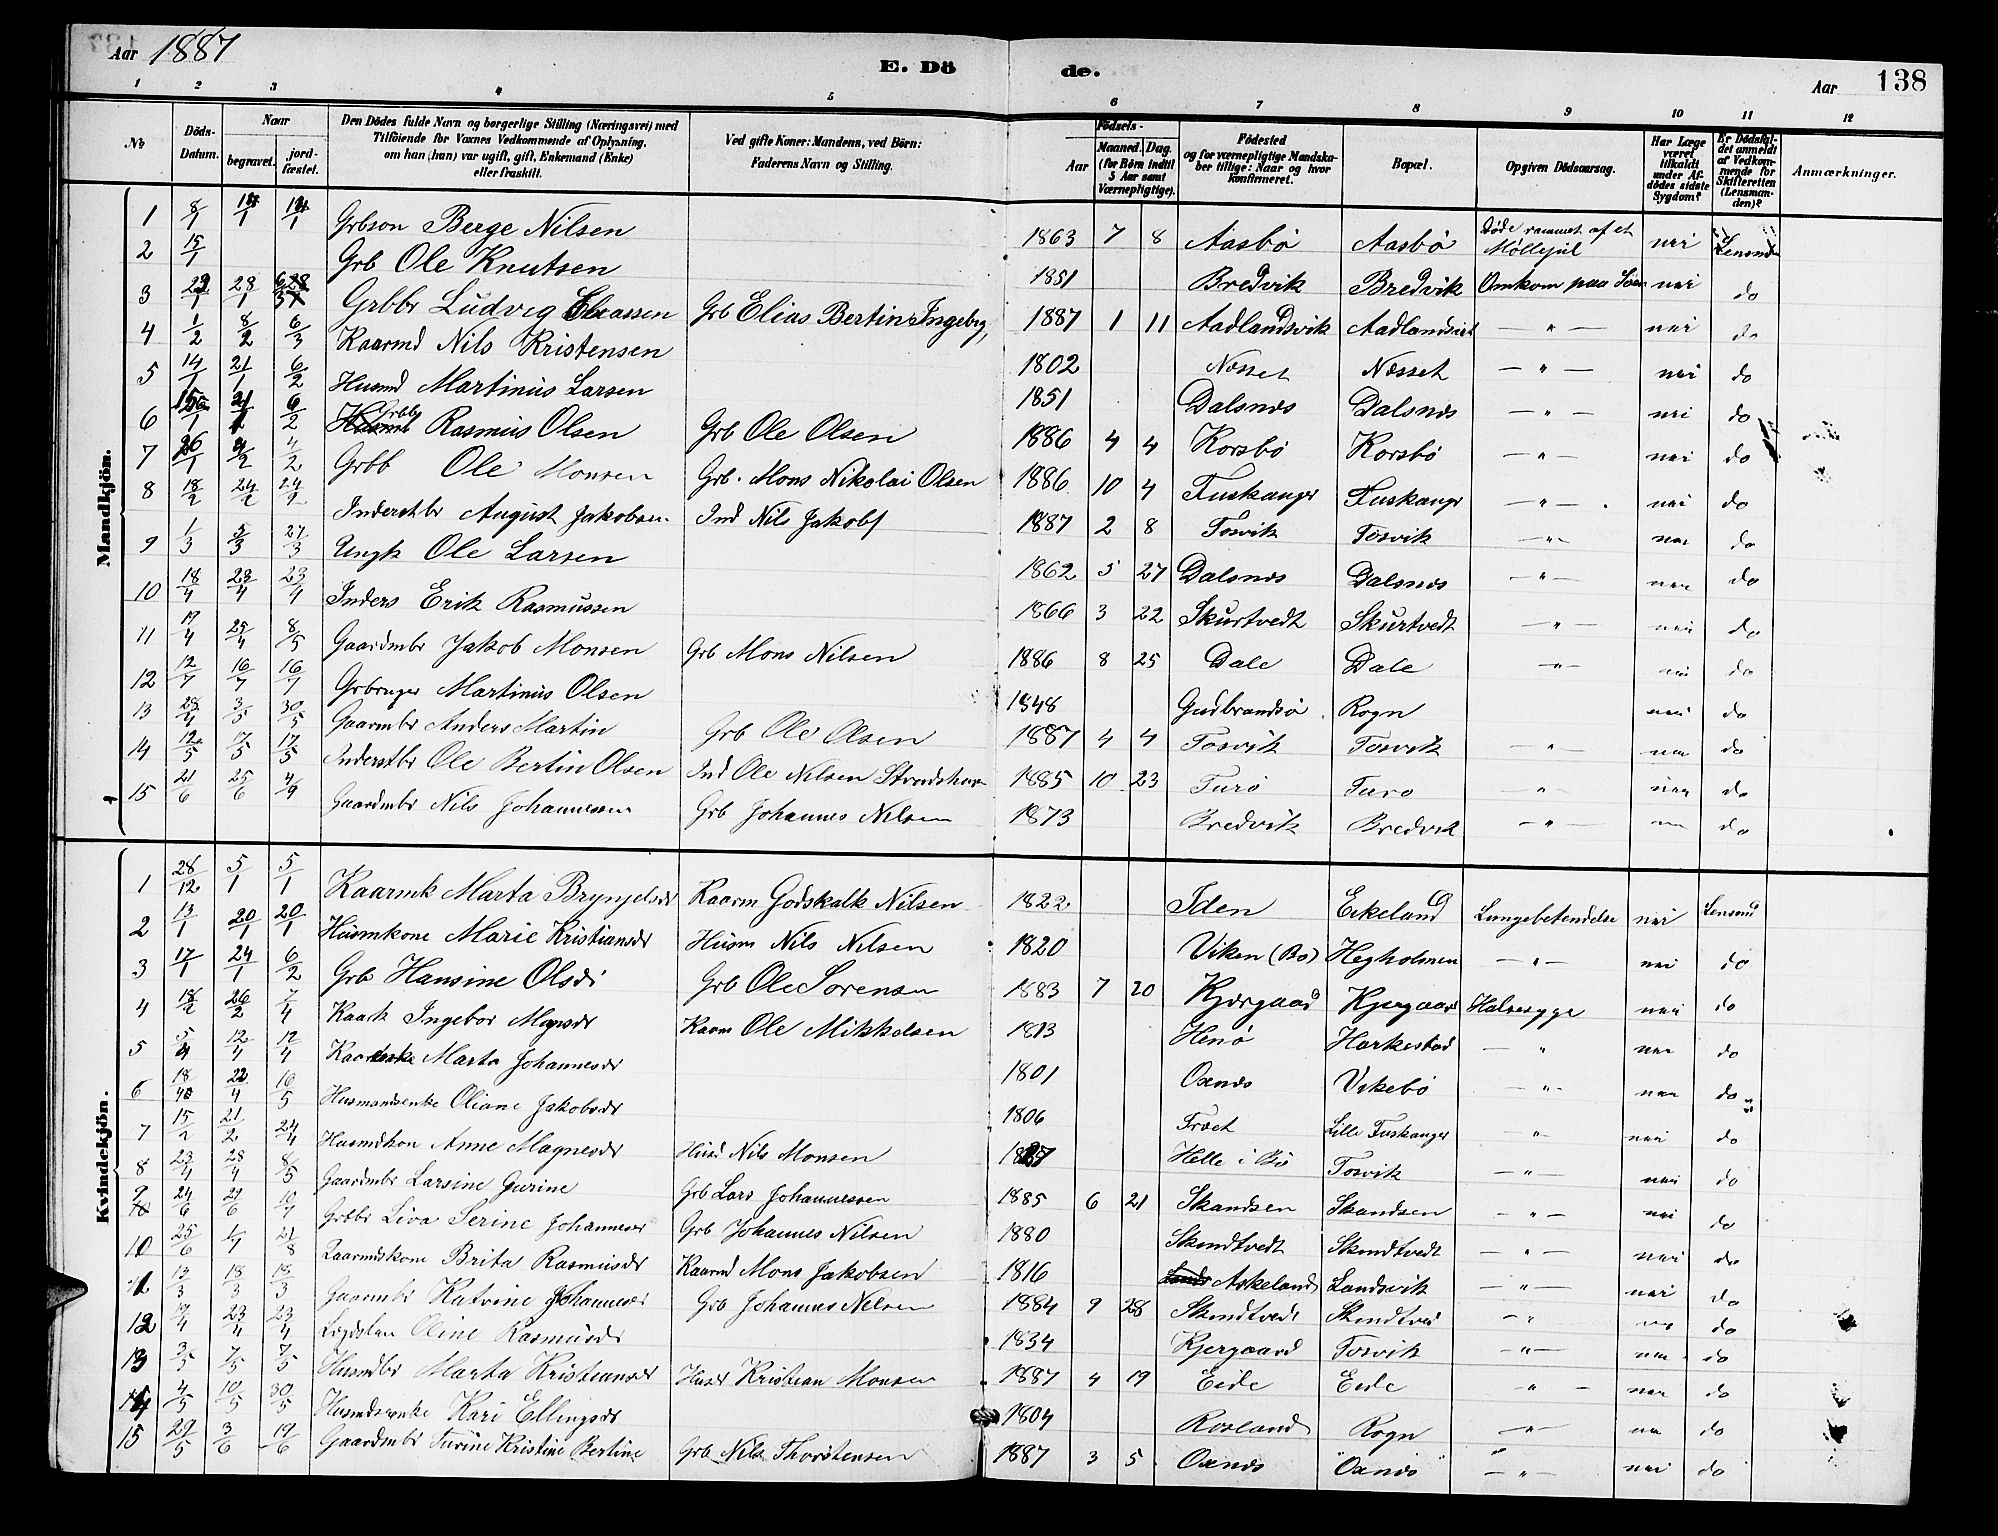 Aar 1887 E. Dö de. Aar 138
1 2 3 4 5 6 7 8 9 10 11 12
No Döds-Datum. Naar begravet. jord-fæstet. Den Dödes fulde Navn og borgerlige Stilling (Næringsvei) med Tilföiende for Voxnes Vedkommende af Oplysning, om han (hun) var ugift, gift, Enkemand (Enke) eller fraskilt. Ved gifte Koner: Mandens, ved Börn: Faderens Navn og Stilling. Födsels- Aar Maaned. Dag. (for Börn indtil 5 Aar samt Værnepligtige). Födested og for værnepligtige Mandska-ber tillige: Naar og hvor konfirmeret. Bopæl. Opgiven Dödsaarsag. Har Læge været tilkaldt under Af-dödes sidste Sygdom? Er Dödsfal-det anmeldt af Vedkom-mende for Skifteretten (Lensman-den)? Anmærkninger.
Mandkjön.
1 8/1 Grbson Berge Nilsen 1863 7 8 Aasbø Aasbø Døde rammet af et Møllehjul nei Lensmd
2 15/1 Grb Ole Knutsen 1851 Bredvik Bredvik Omkom paa Søen nei do
3 28/1 Grbbr Ludvig Eliassen Grb Elias Bertin Ingebr, 1887 1 11 Aadlandsvik Aadlandsvik — " — nei do
4 1/2 8/2 6/3 Kaarmd Nils Kristensen 1802 Nesset Nesset — " — nei do
5 14/1 21/1 6/2 Husmd Martinus Larsen 1851 Dalsnes Dalsnes — " — nei do
6 21/1 6/2 Grbb Rasmus Olsen Grb Ole Olsen 1886 4 4 Korsbø Korsbø — " — nei do
7 26/1 4/2 4/2 Grbb Ole Monsen Grb. Mons Nikolai Olsen 1886 10 4 Fuskanger Fuskanger — " — nei do
8 18/2 24/2 24/2 Inderstbr August Jakobsen. Ind Nils Jakobs 1887 2 8 Tosvik Tosvik — " — nei do
9 1/3 5/3 27/3 Ungk Ole Larsen 1862 5 27 Dalsnes Dalsnes — " — nei do
10 18/4 23/4 23/4 Inders Erik Rasmussen 1866 3 22 Skurtvedt Skurtvedt — " — nei do
11 19/4 25/4 8/5 Gaardmbr Jakob Monsen Grb Mons Nilsen 1886 8 25 Dale Dale — " — nei do
12 12/7 16/7 16/7 Grbruger Martinus Olsen 1848 Gudbrandsø Rogn nei do
13 28/4 3/5 30/5 Gaarmbr Anders Martin Grb Ole Olsen 1887 4 4 Tosvik Tosvik — " — nei do
14 12/5 17/5 17/5 Inderstbr Ole Bertin Olsen Ind Ole Nilsen 1885 10 23 Turø Turø — " — nei do
15 21/6 25/6 4/9 Gaardmbr Nils Johannessen Grb Johannes Nilsen 1873 Bredvik Bredvik — " — do
Kvindekjön.
1 28/12 5/1 5/1 Kaarmk Marta Brynjelsdr Kaarm Godskalk Nilsen 1822 Iden Eikeland Lungebetendelse nei Lensmd
2 13/1 20/1 20/1 Husmkone Marie Kristiansdr Husm Nils Nilsen 1820 Viken (Bø) Hegholmen — " — nei do
3 17/1 24/1 6/2 Grb Hansine Olsdr Grb Ole Sørensen 1883 7 20 Kjergaad Kjergaard Halsesyge nei do
4 18/2 26/2 7/4 Kaark Ingebor Magnsdr Kaarm Ole Mikkelsen 1813 Henø Harkestad — " nei do
5 5/4 12/4 12/4 Kaarenke Marta Johannesdr 1801 Oxnes Vikebø — " — nei do
6 18/4 22/4 16/5 Husmandsenke Oliane Jakobsdr 1806 Træt Lille Fuskanger — " — nei do
7 15/2 21/2 24/4 Husmdkon Anne Magnesdr Husd Nils Monsen Helle i Bø Tosvik — " — nei do
8 23/4 28/4 8/5 Gaardmbr Larsine Gurine Grb Lars Johannessen 1885 6 21 Skandsen Skandsen — " — nei do
9 24/6 29/6 10/7 Grbbr Liva Serine Johannesdr Grb Johannes Nilsen 1880 Skendtvedt Skendtvedt — " — nei do
10 25/6 1/7 21/8 Kaarmdskone Brita Rasmusdr Kaarmd Mons Jakobsen 1816 Askeland Landsvik — " — nei do
11 13/3 18/3 18/3 Gaarmbr Katrine Johannesdr Grb Johannes Nilsen 1884 9 28 Skendtvedt Skendtved — " nei do
12 19/4 23/4 23/4 Lægdslem Oline Rasmusdr 1834 Kjergaard Tosvik — " — nei do
13 3/5 7/5 7/5 Husmdbr Marta Kristiansdr Husd Kristian Monsen 1887 4 19 Eide Eide " — nei do
14 4/5 10/5 30/5 Husmdsenke Kari Ellingsdr 1804 Rosland Rogn — " — nei do
15 29/5 3/6 19/6 Gaardmbr Turine Kristine Bertine Grb Nils Thorstensen 1887 3 5 Oxnes Oxnes — " — nei do